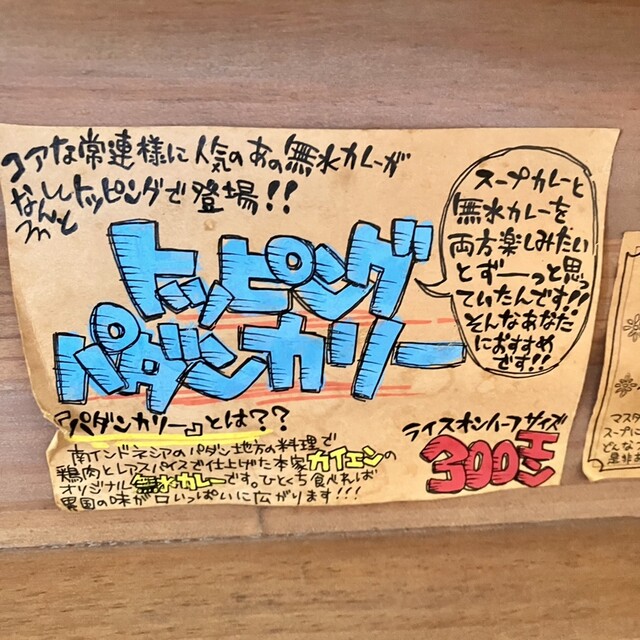 コアな常連様に人気のあの無水カレーが
なんとトッピングで登場!!
トッピング
パダンカリー
スープカレーと
無水カレーを
両方楽しみたい
とずーーっと思っ
ていたんです!!
そんなあなた
におすすめ
です!!
『パダンカリー』とは??
南インドネシアのパダン地方の料理で
鶏肉とレアスパイスで仕上げた本家カイエンの
オリジナル無水カレーです。ひとくち食べれば
異国の味が口いっぱいに広がります!!!
ライスオンハーフサイズ
300円
マスタ
スープに
どんな
是非